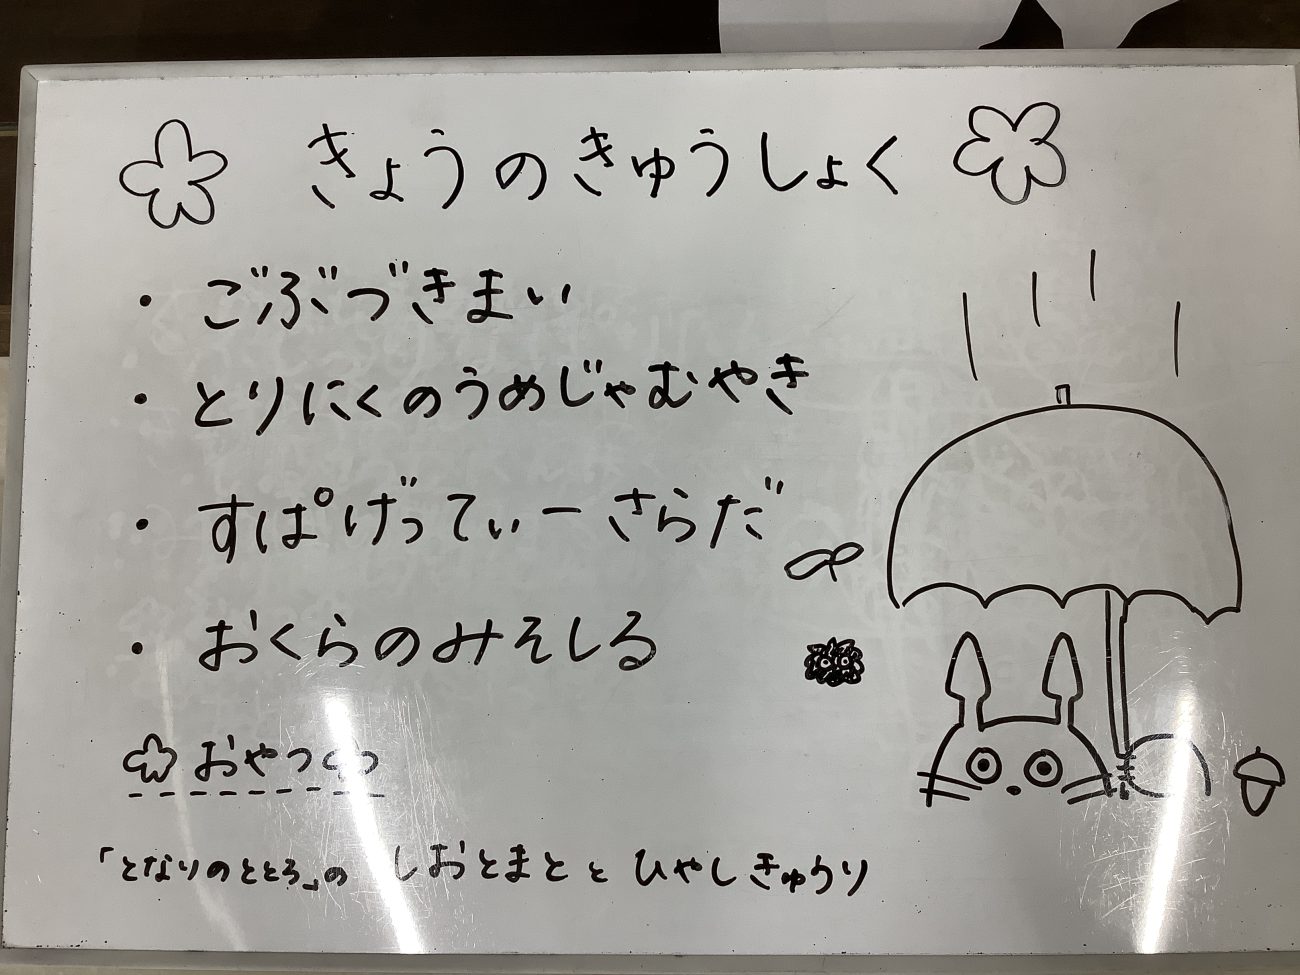 きょうのきゅうしょく
・ごぶづきまい
・とりにくのうめじゃむやき
・すぱげってぃーさらだ
・おくらのみそしる
おやつ
「となりのととろ」の しおとまと と ひやしきゅうり